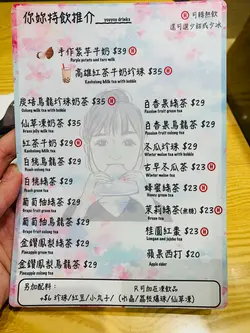 你妳特飲推介 yoyoyo drinks
Ⓗ 可轉熱飲
還可選少甜或少冰
手作紫芋牛奶 $39 Ⓗ
Purple potato and taro milk
高雄紅茶牛奶珍珠 $35
Kaohsiung Milk tea with bubble
炭培烏龍珍珠奶茶 $35
Oolong milk tea with bubble
仙草凍奶茶 $35
Grass jelly milk tea
紅茶牛奶 $29 Ⓗ
Kaohsiung Milk tea
白桃烏龍茶 $29
Peach oolong tea
白桃綠茶 $29
Peach green tea
葡萄柚綠茶 $29
Grape fruit green tea
葡萄柚烏龍茶 $29
Grape fruit oolong tea
金鑽鳳梨綠茶 $29
Pineapple green tea
金鑽鳳梨烏龍茶 $29
Pineapple oolong tea
百香果綠茶 $29
Passion fruit green tea
百香果烏龍茶 $29
Passion fruit oolong tea
冬瓜珍珠 $29
Winter melon tea with bubble
古早冬瓜茶 $23 Ⓗ
Winter melon tea
蜂蜜綠茶 $23 Ⓗ
Honey green tea
茉莉綠茶(無糖) $23 Ⓗ
Jasmine tea
桂圓紅棗 $23 Ⓗ
Longan and jujube tea
蘋果西打 $20
Apple cider
另加配料：
R可加在凍飲品
+$6 珍珠/紅豆/小丸子/